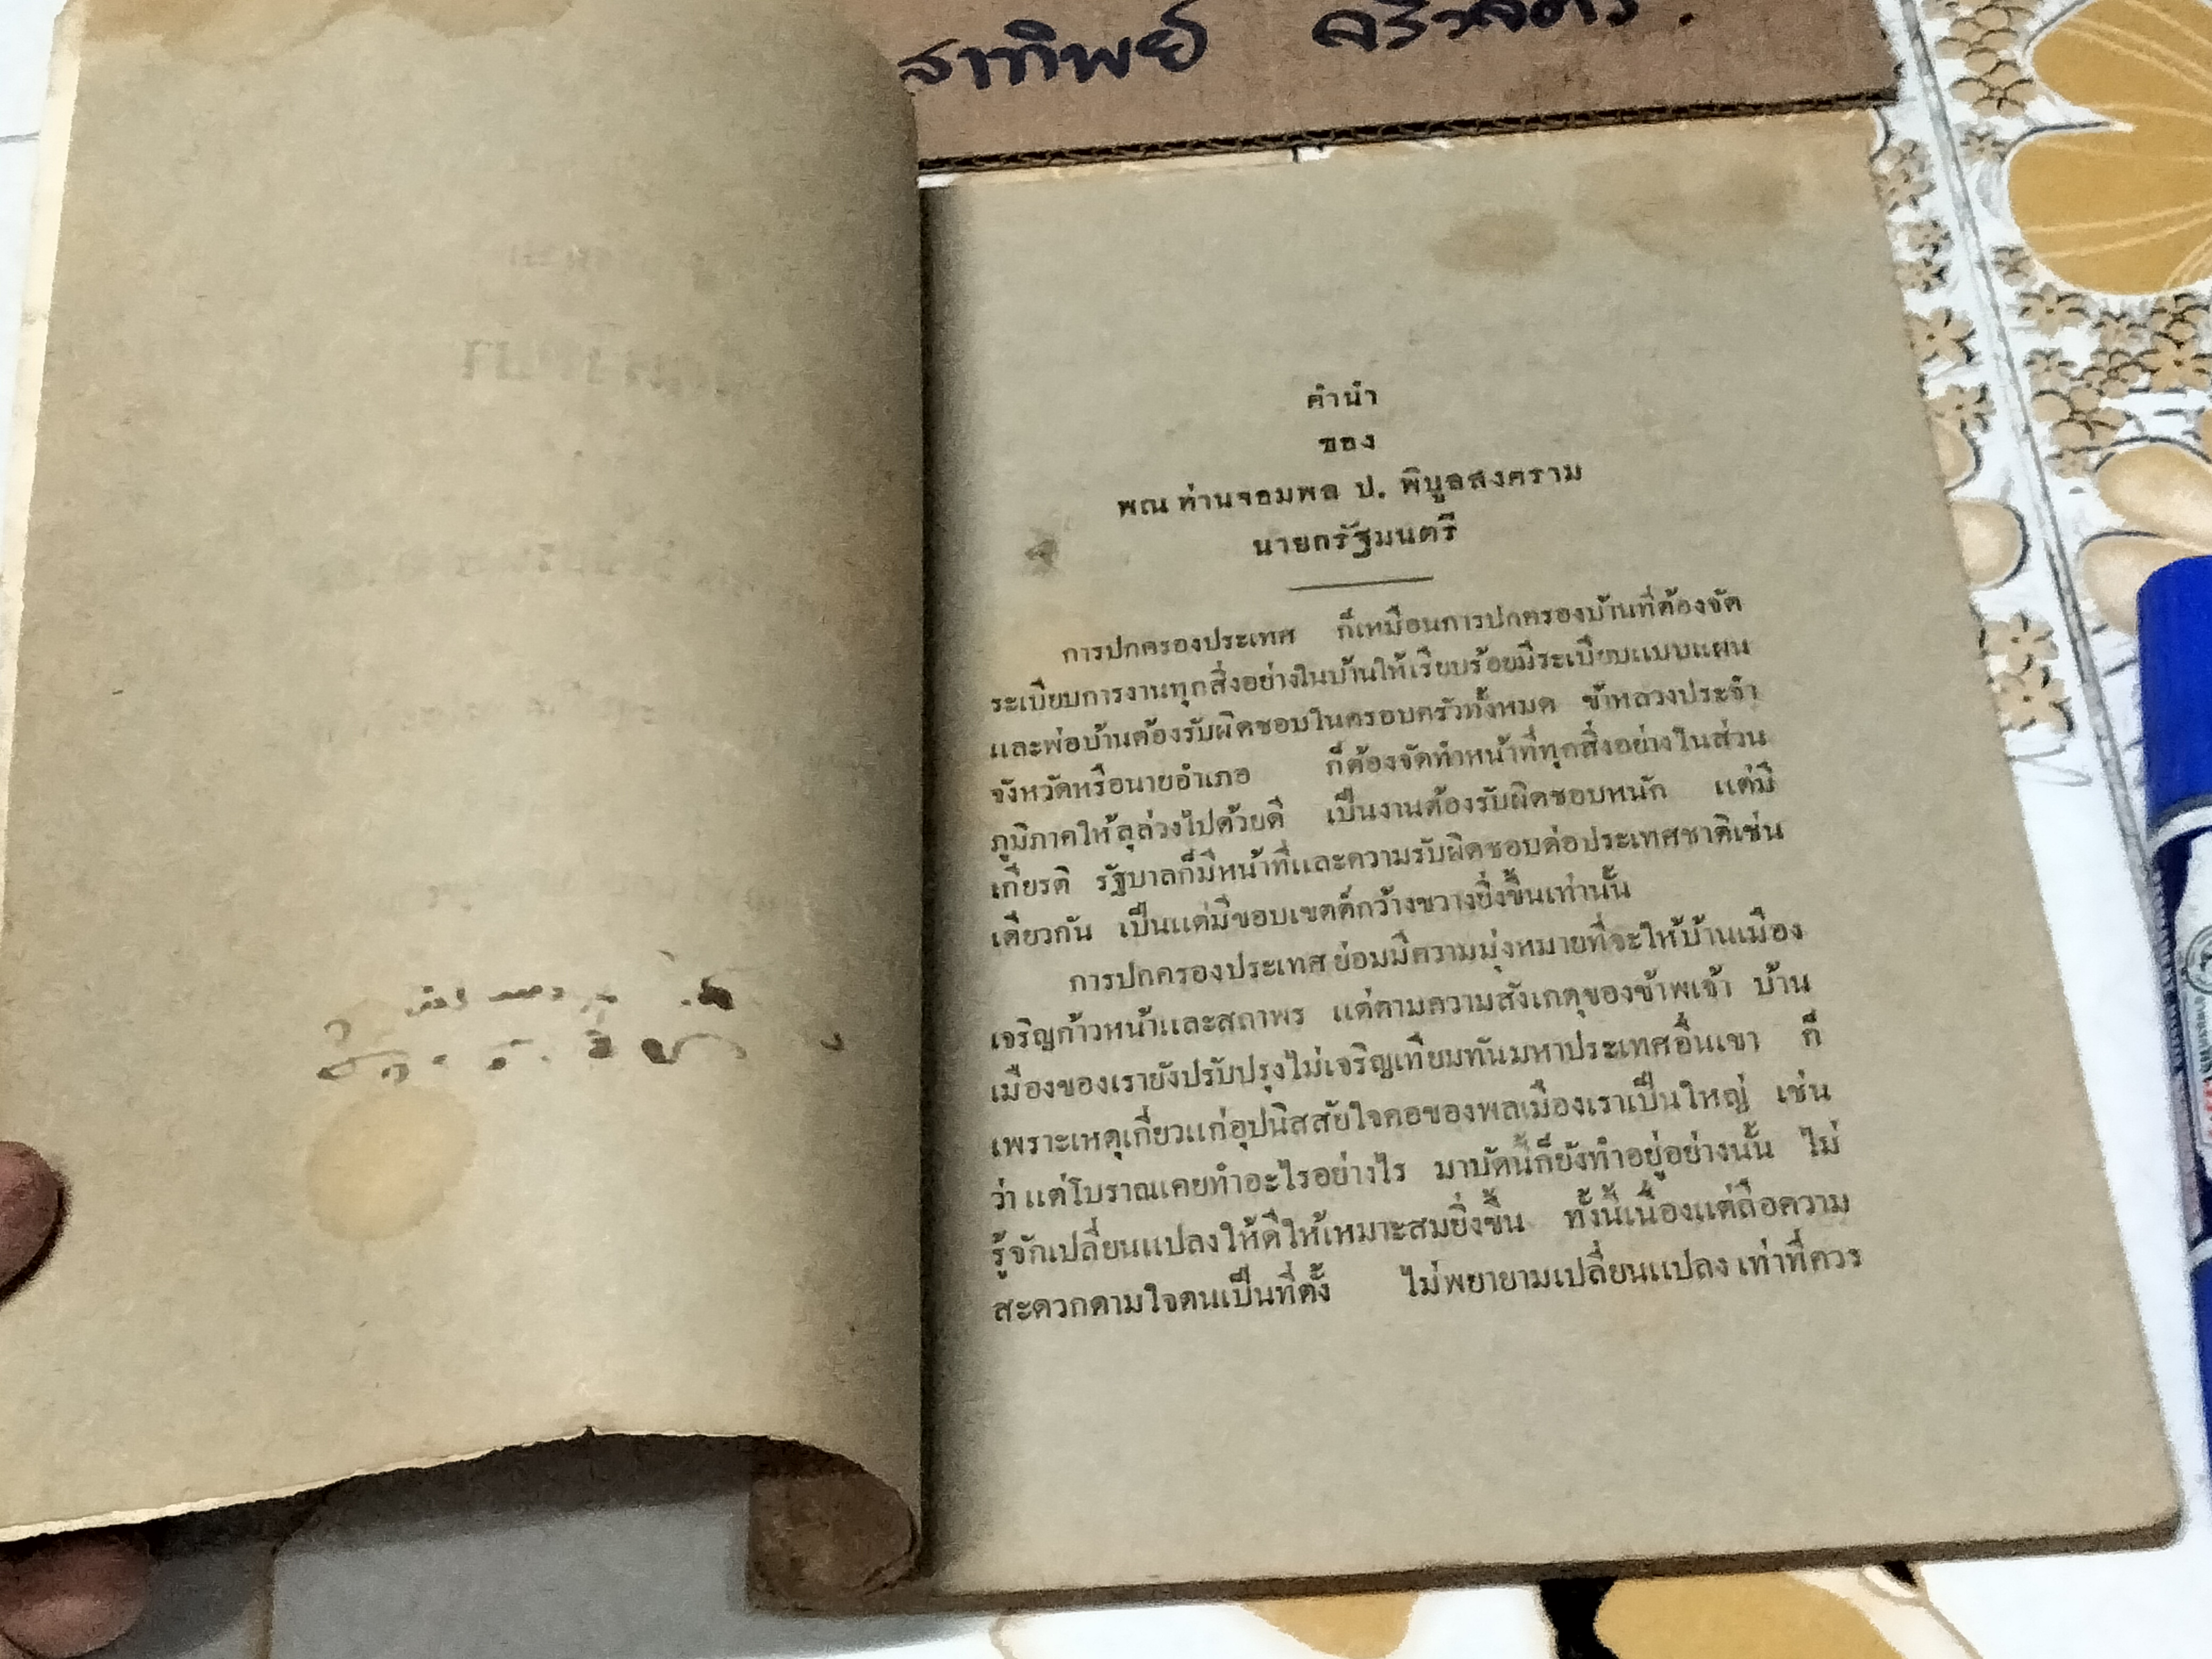 สาทิพย์
คำนำ
ของ
พณ ท่านจอมพล ป. พิบูลสงคราม
นายกรัฐมนตรี
การปกครองประเทศ ก็เหมือนการปกครองบ้านที่ต้องจัด
ระเบียบการงานทุกสิ่งอย่างในบ้านให้เรียบร้อยมีระเบียบแบบแผน
และพ่อบ้านต้องรับผิดชอบในครอบครัวทั้งหมด ข้าหลวงประจำ
จังหวัดหรือนายอำเภอ ก็ต้องจัดทำหน้าที่ทุกสิ่งอย่างในส่วน
ภูมิภาคให้ลุล่วงไปด้วยดี เป็นงานต้องรับผิดชอบหนัก แต่มี
เกียรติ รัฐบาลก็มีหน้าที่และความรับผิดชอบต่อประเทศชาติเช่น
เดียวกัน เป็นแต่มีขอบเขตต์กว้างขวางยิ่งขึ้นเท่านั้น
การปกครองประเทศย่อมมีความมุ่งหมายที่จะให้บ้านเมือง
เจริญก้าวหน้าและสถาพร แต่ตามความสังเกตุของข้าพเจ้า บ้าน
เมืองของเรายังปรับปรุงไม่เจริญเทียมทันมหาประเทศอื่นเขา ก็
เพราะเหตุเกี่ยวแก่อุปนิสสัยใจคอของพลเมืองเราเป็นใหญ่ เช่น
ว่า แต่โบราณเคยทำอะไรอย่างไร มาบัดนี้ก็ยังทำอยู่อย่างนั้น ไม่
รู้จักเปลี่ยนแปลงให้ดีให้เหมาะสมยิ่งขึ้น ทั้งนี้เนื่องแต่ถือความ
สะดวกตามใจตนเป็นที่ตั้ง ไม่พยายามเปลี่ยนแปลง เท่าที่ควร